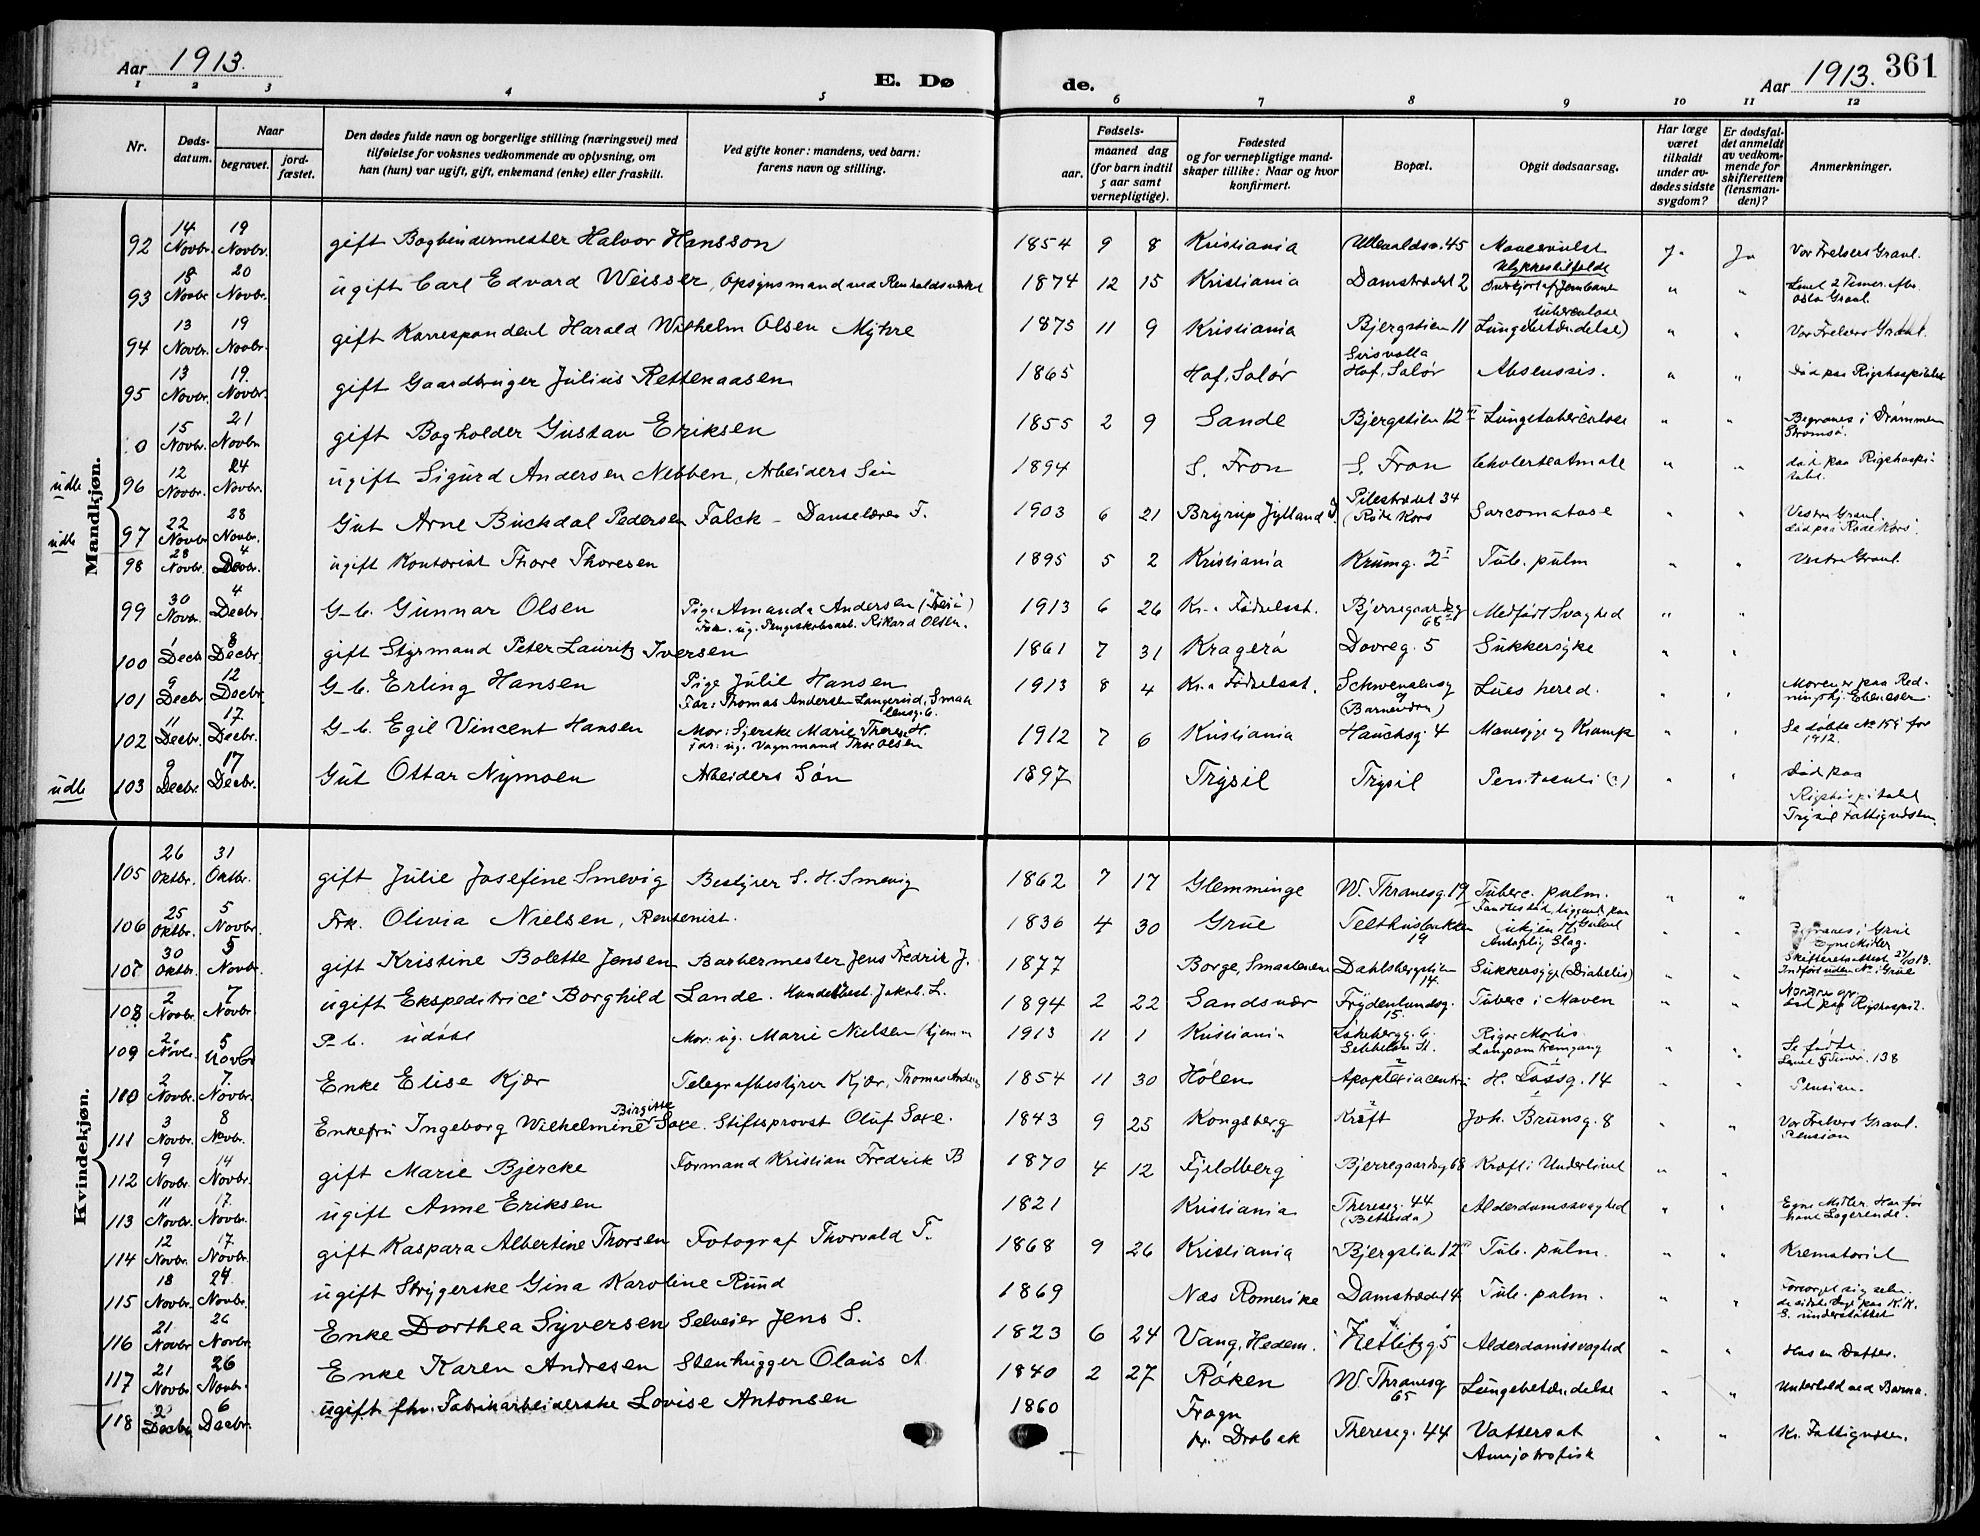 Aar 1913.
E. Dø
de.
Aar 1913. 361
1 2 3 4 5 6 7 8 9 10 11 12
Nr. Døds-datum. Naar begravet. jord-fæstet. Den dødes fulde navn og borgerlige stilling (næringsvei) med tilføielse for voksnes vedkommende av oplysning, om han (hun) var ugift, gift, enkemand (enke) eller fraskilt. Ved gifte koner: mandens, ved barn: farens navn og stilling. Fødsels- aar. maaned dag (for barn indtil 5 aar samt vernepligtige). Fødested og for vernepligtige mand-skaper tillike: Naar og hvor konfirmert. Bopæl. Opgit dødsaarsag. Har læge været tilkaldt under av-dødes sidste sygdom? Er dødsfal-det anmeldt av vedkom-mende for skifteretten (lensman-den)? Anmerkninger.
Mandkjøn.
92 14 Novbr. 19 Novbr. gift Bogbindermester Halvor Hansson 1854 9 8 Kristiania Ullevaldsv. 45 Mavesvulst Ja Ja Vor Frelsers Gravl.
93 18 Novbr. 20 Novbr. ugift Carl Edvard Weisser, Opsynsmand ved Renholdsverket 1874 12 15 Kristiania Damstrædet 2 Ulykkestilfælde Overkjørt af Jernbane " " Oslo Gravl.
94 13 Novbr. 19 Novbr. gift Korrespondent Harald Wilhelm Olsen Myhre 1875 11 9 Kristiania Bjergstien 11 Lungebetændelse) tuberculose " " Vor Frelsers Gravl.
95 13 Novbr. 19. Novbr. gift Gaardbruger Julius Rettenaasen 1865 Hof, Solør Hof, Solør " " død paa Rigshospitalet
0 15 Novbr. 21 Novbr. gift Bogholder Gustav Eriksen 1855 2 9 Sande Bjergstien 12 II Lungetuberculose " " Begraves i Drammen Strømsø.
udb 96 12 Novbr. 24 Novbr. ugift Sigurd Andersen Nebben, Arbeiders Søn 1894 S. Fron S. Fron " " død paa Rigshospitalet.
udb 97 22 Novbr. 28 Novbr. Gut Arne Buchdal Pedersen Falck – Danselærer F. 1903 6 21 Bryrup Jylland Pilestrædet 34 (Røde Kors Sarcomatose " " Vestre Gravl. død paa Røde Kors.
98 28 Novbr. 4 Decbr. ugift Kontorist Thore Thoresen 1895 5 2 Kristiania Krumg. 2 I Tub. pulm " " Vestre Gravl.
99 30 Novbr. 4 Decbr. G–b. Gunnar Olsen Pige Amanda Andersen Far. ug. Pengeskabsarb. Rikard Olsen. 1913 6 26 Kr.a Fødselsst. Bjerregaardsg 68 Medfødt Svaghed " "
100 1 Decbr. 8 Decbr. gift Styrmand Peter Lauritz Iversen 1861 7 31 Kragerø Dovreg. 5 Sukkersyke " "
101 9 Decbr. 12 Decbr. G–b. Erling Hansen Pige Julie Hansen Far: Thomas Andersen Langerud, 1913 8 4 Kr.a Fødselsst. Schwensensg 9 Lues hered. " " Moren er paa Redningshj. Ebeneser.
102 11 Decbr. 17. Decbr. G–b. Egil Vincent Hansen Mor: Syerske Marie Therese H. far: ug. Vognmand Thor Olsen 1912 7 6 Kristiania Hauchsg. 4 Mavesyge og Krampe " " Se døbte No for 1912.
udb 103 9 Decbr. 17 Decbr. Gut Ottar Nymoen Arbeiders Søn 1897 Trysil Trysil " " død paa Rigshospitalet Trysil Fattigvæsen
Kvindekjøn.
105 26 Oktbr. 31 Oktbr. gift Julie Josefine Smevig Bestyrer S. H. Smevig 1862 7 17 Glemminge W. Thranesg. 19 Tuberc. pulm. " "
106 25 Oktbr. 5 Novbr. Frk. Olivia Nielsen, Rentenist. 1836 4 30 Grue Telthusbakken 19 Fandtes død, liggende paa Gulvet Apoplig Slag. " " Begraves i Grue Egne Midler
107 30 Oktbr. 5 Novbr. gift Kristine Bolette Jensen Barbermester Jens Fredrik J. 1877 Borge, Smaalenene Dahlsbergstien 14. Sukkersyge (Diabetis) " "
108 2 Novbr. 7 Novbr. ugift Ekspeditrice Borghild Lande. Jakob L. 1894 2 22 Sandsvær Frydenlundsg. 15 Tuberc i Maven " " død paa Rigshospit.
109 2 Novbr. 5 Novbr P–b. udøbt Mor: ug. Marie Nielsen 1913 11 1 Kristiania Løkkebergg. 6. Rigor Mortis Langsom Fremgang " " Se fødte 138
110 2 Novbr. 7. Novbr. Enke Elise Kjær Telegrafbestyrer Kjær, Thomas 1854 11 30 Hølen H. Tøssg. 14 " " Pension.
111 3 Novbr. 8 Novbr. Enkefru Ingeborg Wilhelmine Birgitte Soxe. Stiftsprovst Oluf Soxe. 1843 9 25 Kongsberg Kræft Joh. Brunsg. 8 " " Vor Frelsers Gravl. Pension
112 9 Novbr. 14 Novbr. gift Marie Bjercke Formand Kristian Fredrik B 1870 4 12 Fjeldberg Bjerregaardsg 68 Kræft i Underlivet " "
113 11 Novbr. 17. Novbr. ugift Anne Eriksen 1821 Kristiania Thereseg. 44 (Bethesda) Alderdomssvaghed " " Egne Midler.
114 12 Novbr. 17. Novbr. gift Kaspara Albertine Thorsen Fotograf Thorvald T. 1868 9 26 Kristiania Bjergstien 12 Tub. pulm. " " Krematoriet
115 18 Novbr. 24. Novbr. ugift Strygerske Gina Karoline Ruud 1869 Næs Romerike Damstrædet 4 Tub. pulm. " "
116 21 Novbr. 26 Novbr. Enke Dorthea Syversen Selveier Jens S. 1823 6 24 Vang, Hedem. Zetlitzg 5 Alderdomssvaghed " " Hos en Datter.
117 21 Novbr. 26 Novbr. Enke Karen Andresen Stenhugger Olaus A. 1840 2 27 Røken W. Thranesg 65 Lungebetændelse " " Underhold ved Barna.
118 2 Decbr. 6 Decbr. ugift fhv. Fabrikarbeiderske Lovise Antonsen 1860 Frogn pr. Drøbak Thereseg. 44 Vattersot " " Kr. Fattigvæsen.